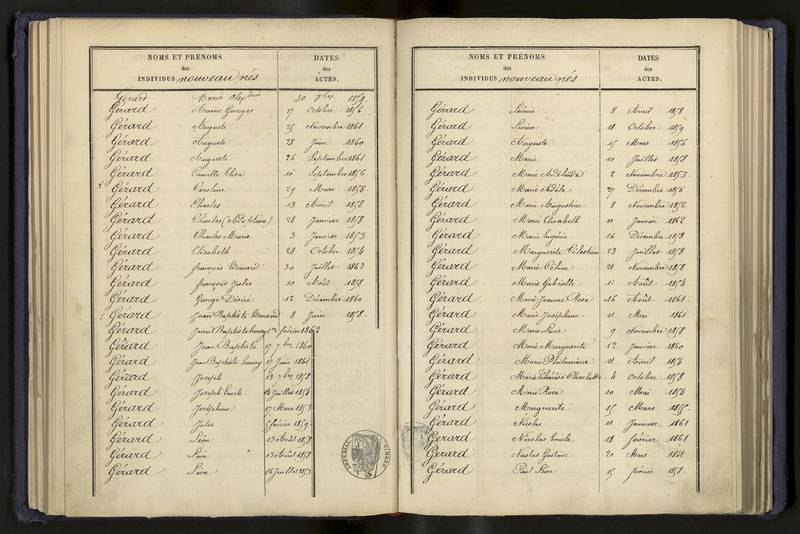 NOMS ET PRÉNOMS
des
INDIVIDUS nouveau nés
DATES
des
ACTES.
Gérard Marie 30 1859
Gérard Georges 17 Octobre 1856
Gérard Auguste 25 Novembre 1861
Gérard Auguste 28 Juin 1860
Gérard Auguste 26 Septembre 1861
Gérard Camille Elisa 10 Septembre 1856
Gérard Caroline 29 Mars 1858
Gérard Charles 13 Avril 1858
Gérard Charles 28 Janvier 1858
Gérard Charles Marie 3 Janvier 1853
Gérard Elisabeth 28 Octobre 1854
Gérard François Edouard 30 Juillet 1862
Gérard François Jules 10 Août 1858
Gérard George Désiré 12 Décembre 1860
Gérard Jean Baptiste Edmond 8 Juin 1858
Gérard Jean Baptiste henry février 1862
Gérard Jean Baptiste 17 7bre 1860
Gérard Jean Baptiste henry 17 Juin 1861
Gérard Joseph 1858
Gérard Joseph Emile Juillet 1854
Gérard Joséphine 17 Mars 1853
Gérard Jules 5 février 1859
Gérard Léon 13 Août 1858
Gérard Léon 13 Août 1858
Gérard Léon 16 Juillet 1853
NOMS ET PRÉNOMS
des
INDIVIDUS nouveau nés
DATES
des
ACTES.
Gérard Léonie 8 Avril 1858
Gérard Lucien 18 Octobre 1859
Gérard Auguste 15 Mars 1856
Gérard Marie 10 Juillet 1858
Gérard Marie Adélaïde 2 Novembre 1853
Gérard Marie Adèle 27 Décembre 1856
Gérard Marie Augustine 8 Novembre 1856
Gérard Marie Elisabeth 11 Janvier 1862
Gérard Marie Eugénie 16 Décembre 1858
Gérard Marguerite Célestine 23 Juillet 1858
Gérard Marie Céline 21 Novembre 1858
Gérard Marie Gabrielle Août 1854
Gérard Marie Jeanne Rose 16 Août 1861
Gérard Marie Joséphine 11 Mai 1861
Gérard Marie 9 Novembre 1858
Gérard Marie Marguerite 12 Janvier 1860
Gérard Marie Philomène 11 Avril 1856
Gérard Marie Charlotte 4 Octobre 1858
Gérard Marie Rose 10 Mai 1854
Gérard Marguerite 15 Mars 1855
Gérard Nicolas 11 Janvier 1861
Gérard Nicolas Emile 18 février 1861
Gérard Nicolas Gustave 20 Mars 1861
Gérard Paul Léon 15 février 1858